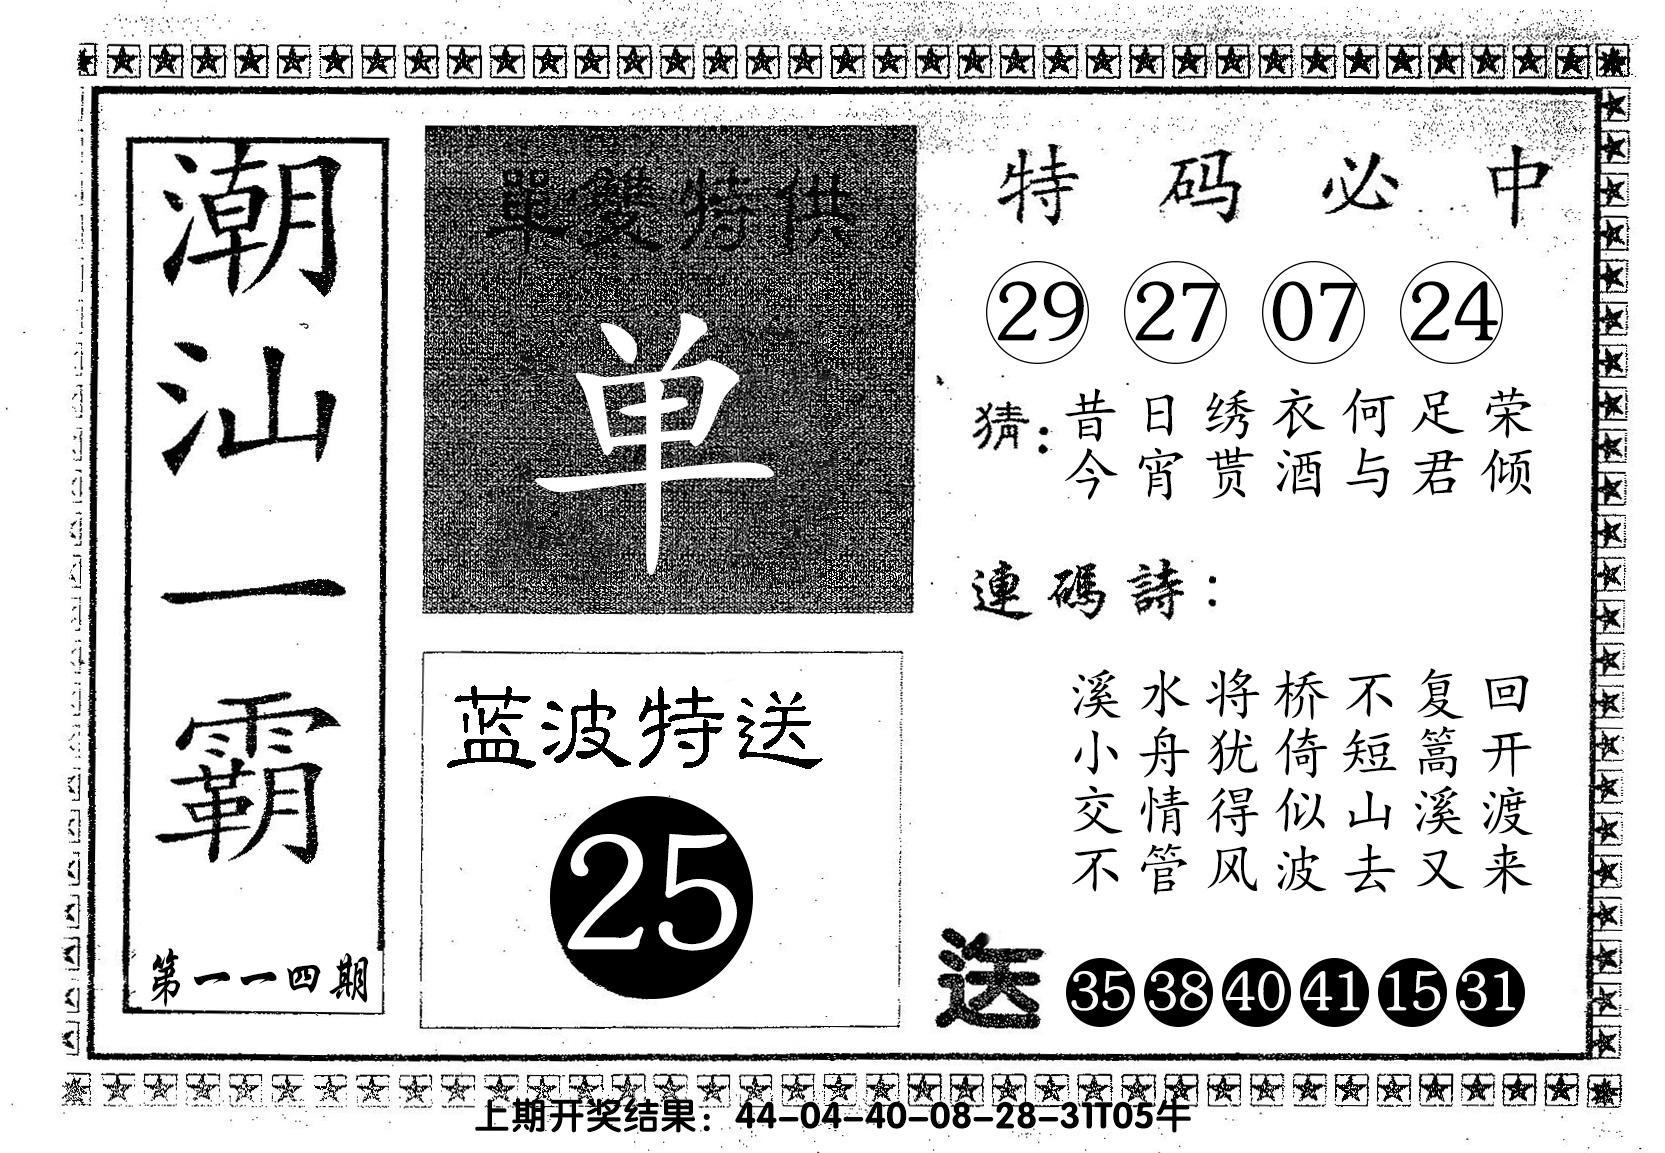 潮汕一霸
第一一四期
單雙特供
单
蓝波特送
25
特码必中
29 27 07 24
猜：
昔日绣衣何足荣
今宵贳酒与君倾
連碼詩：
溪水将桥不复回
小舟犹倚短篙开
交情得似山溪渡
不管风波去又来
送 35 38 40 41 15 31
上期开奖结果：44-04-40-08-28-31T05牛